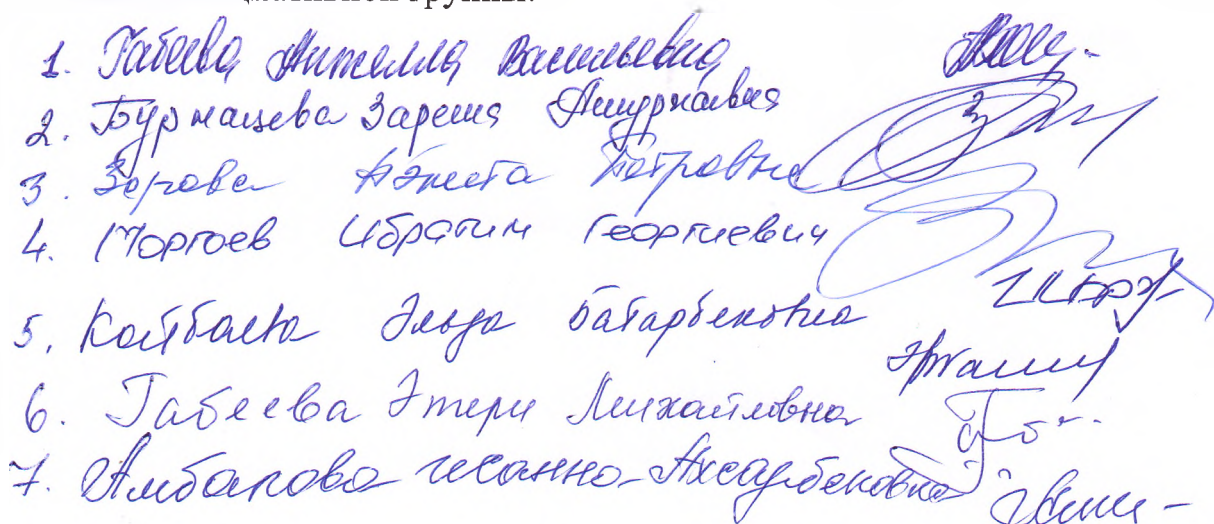 группы.
1. Габеева Анжелла Васильевна
2. Бурнацева Зарема
3. Зорова Анжета Петровна
4. Моргоев Ибрагим Георгиевич
5. Койбаева Эльда Батарбековна
6. Габеева Этери Михайловна
7. Амбалова Жанна Ахсарбековна